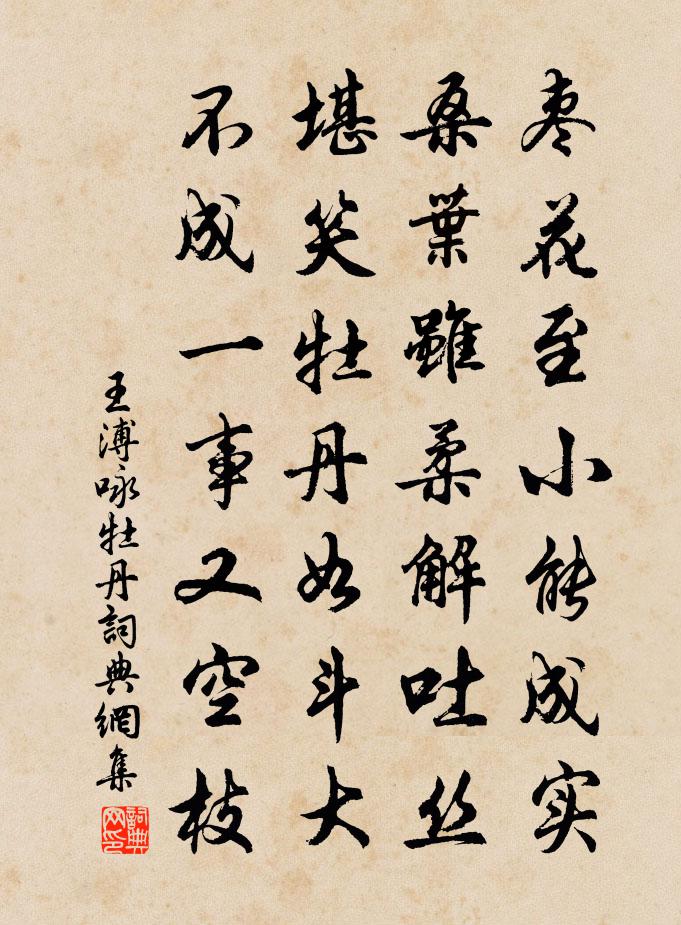 枣花至小能成实
桑葉雖柔解吐丝
堪笑牡丹如斗大
不成一事又空枝
王溥咏牡丹詞典網集
詞典网印